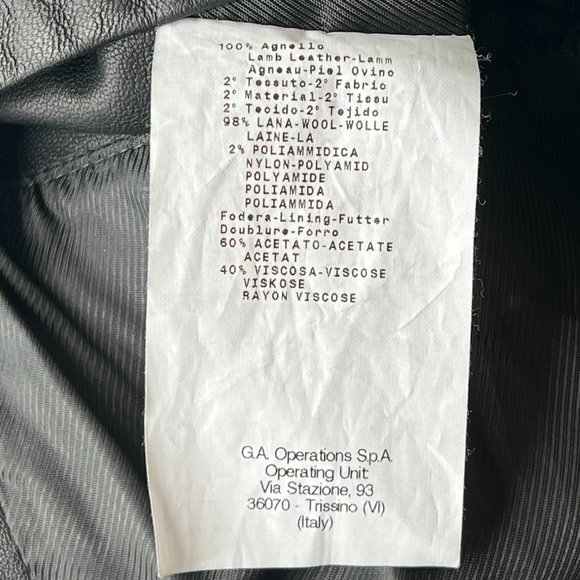 100% Agnello
Lamb Leather-Lamm
Agneau-Piel Ovino
2° Tessuto-2° Fabric
2° Material-2° Tissu
2° Tecido-2° Tejido
98% LANA-WOOL-WOLLE
LAINE-LA
2% POLIAMMIDICA
NYLON-POLYAMID
POLYAMIDE
POLIAMIDA
POLIAMMIDA
Fodera-Lining-Futter
Doublure-Forro
60% ACETATO-ACETATE
ACETAT
40% VISCOSA-VISCOSE
VISKOSE
RAYON VISCOSE
G.A. Operations S.p.A.
Operating Unit:
Via Stazione, 93
36070 - Trissino (VI)
(Italy)